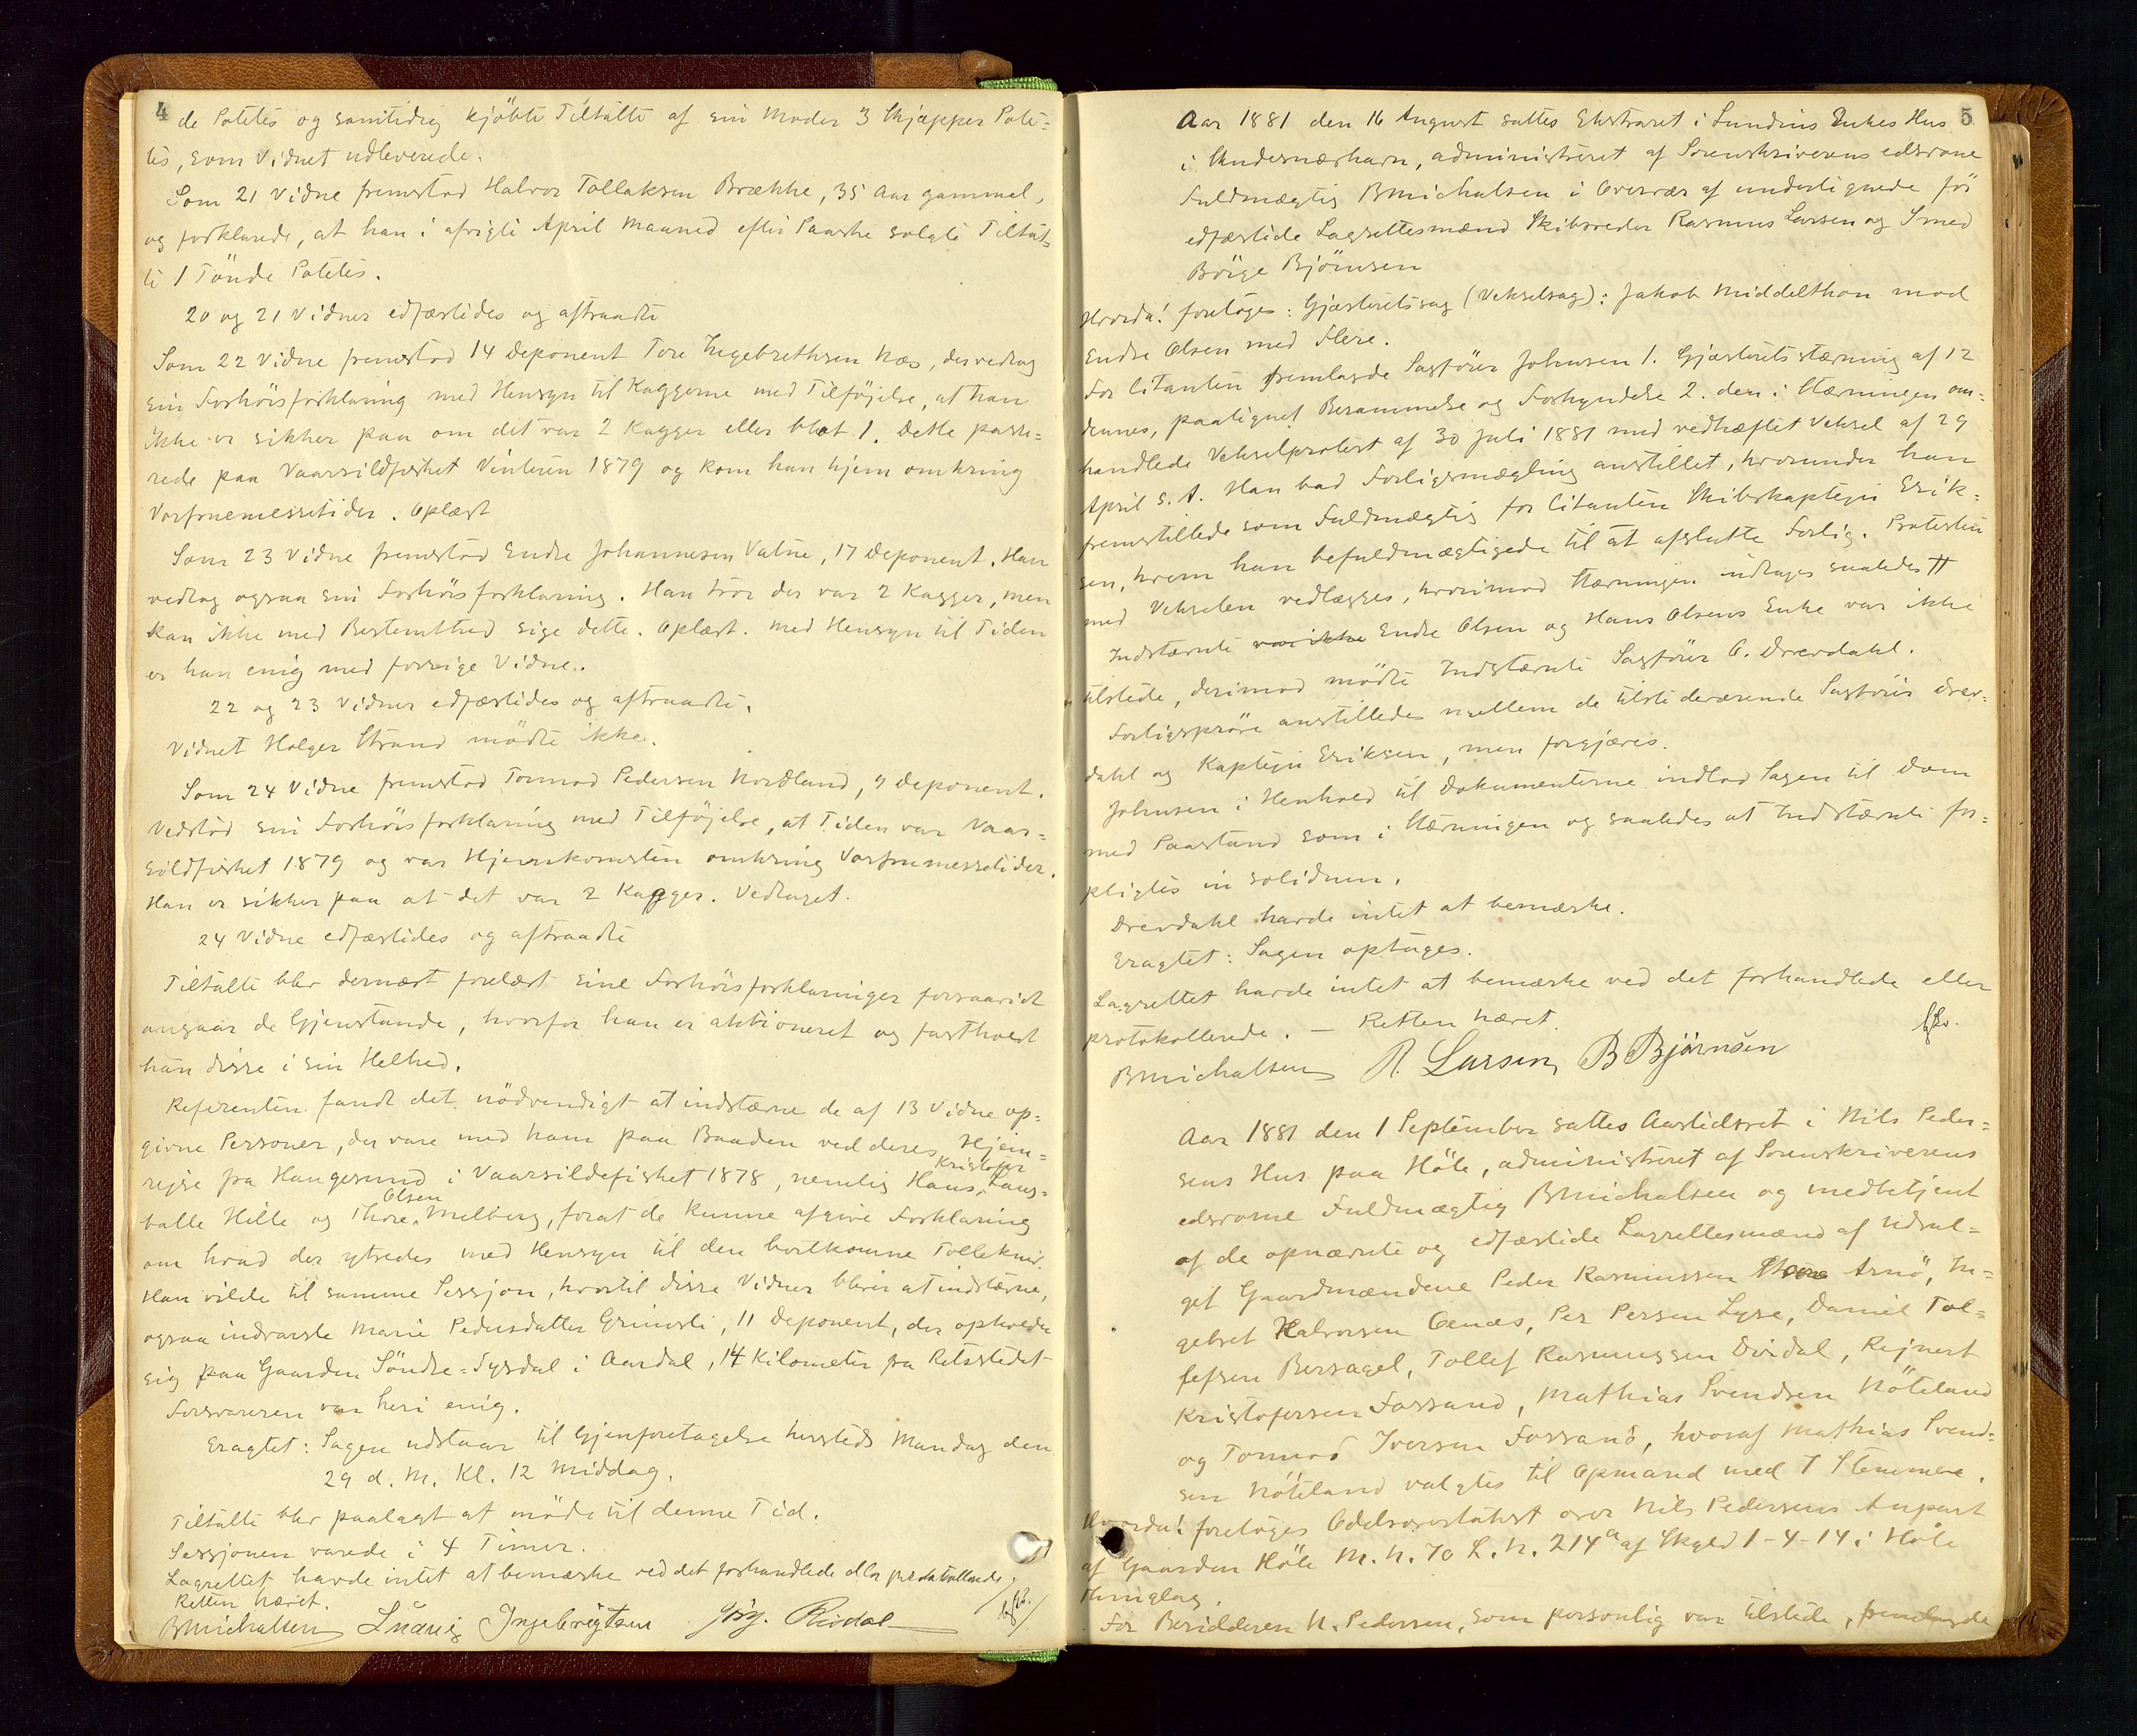 4
de Potetes og samtidig kjöbte Tiltalte af sin Moder 3 Skjæpper Pote=
tes, som Vidnet udleverede.
Som 21 Vidne fremstod Halvor Tollaksen Brække, 35 Aar gammel,
og forklarede, at han i afvigte April Maaned efter Paaske solgte Tiltal=
te 1 Tönde Potetes.
20 og 21 Vidner edfæstedes og aftraadte
Som 22 Vidne fremstod 14 Deponent Tore Ingebrethsen Næs, der vedtog
sin Forhörsforklaring med Hensyn til Kaggerne med Tilföjelse, at han
ikke er sikker paa om det var 2 Kagger eller blot 1. Dette passe=
rede paa Vaarsildfisket Vinteren 1879 og kom han hjem omkring
Vorfruemessetider. Oplæst
Som 23 Vidne fremstod Endre Johannesen Valne, 17 Deponent. Han
vedtog ogsaa sin Forhörsforklaring. Han tror der var 2 Kagger, men
kan ikke med Bestemthed sige dette. Oplæst. Med Hensyn til Tiden
er han enig med forrige Vidne.
22 og 23 Vidner edfæstedes og aftraadte.
Vidnet Holger Strand mödte ikke.
Som 24 Vidne fremstod Tormod Pedersen Nordland, 9 Deponent.
Vedstod sin Forhörsforklaring med Tilföjelse, at Tiden var Vaar=
sildfisket 1879 og var Hjemkomsten omkring Vorfruemessetider.
Han er sikker paa at det var 2 Kagger. Vedtaget.
24 Vidne edfæstedes og aftraadte
Tiltalte blev dernæst forelæst sine Forhörsforklaringer forsaavidt
angaar de Gjenstande, hvorfor han er aktioneret og fastholdt
han disse i sin Helhed.
Referenten fandt det nödvendigt at indstævne de af 13 Vidne op=
givne Personer, der vare med ham paa Baaden ved deres Hjem=
rejse fra Haugesund i Vaarsildefisket 1878, nemlig Hans Kristofer Lang=
balle Hille og Thore Olsen Melberg, forat de kunne afgive Forklaring
om hvad der ytredes med Hensyn til den bortkomne Tollekniv.
Han vilde til samme Sessjon, hvortil disse Vidner bliver at indstævne,
ogsaa indvarsle Marie Pedersdatter Grimsli, 11 Deponent, der opholder
sig paa Gaarden Söndre=Tysdal i Aardal, 14 Kilometer fra Retsstedet
Forsvareren var heri enig.
Eragtet: Sagen udstaar til Gjenforetagelse hersteds Mandag den
29 d. M. Kl. 12 Middag.
Tiltalte blev paalagt at möde til denne Tid.
Sessjonen varede i 4 Timer.
Lagrettet havde intet at bemærke ved det forhandlede eller protokollerede.
Retten hævet.
BMichalsen Ludvig Ingebrigtsen
5
Aar 1881 den 16 August sattes Ekstraret i Lundins Enkes Hus
i Skudesnæshavn, administreret af Sorenskriverens edsvorne
Fuldmægtig BMichalsen i Overvær af undertegnede för
edfæstede Lagrettesmænd Skibsreder Rasmus Larsen og Smed
Börge Björnsen
Hvorda! foretoges: Gjæsteretssag (Vekselsag): Jakob Middelthon mod
Endre Olsen med Flere.
For Citanten fremlagde Sagförer Johnsen 1. Gjæsteretsstævning af 12
dennes, paategnet Berammelse og Forkyndelse 2. den i Stævningen om=
handlede Vekselprotest af 30 Juli 1881 med vedhæftet Veksel af 29
April s. A. Han bad Forligsmægling anstillet, hvorunder han
fremstillede som Fuldmægtig for Citanten Skibskaptejn Erik=
sen, hvem han befuldmægtigede til at afslutte Forlig. Protesten
med Vekselen vedlægges, hvorimod Stævningen indtages saaledes #
Indstævnte var ikke Endre Olsen og Hans Olsens Enke var ikke
tilstede, derimod mödte Indstævnte Sagförer O. Drevdahl.
Forligspröve anstilledes mellem de tilstedeværende Sagförer Drev=
dahl og Kaptejn Eriksen, men forgjæves.
Johnsen i Henhold til Dokumenterne indlod Sagen til Dom
med Paastand som i Stævningen og saaledes at Indstævnte for=
pligtes in solidum.
Drevdahl havde intet at bemærke.
Eragtet: Sagen optages.
Lagrettet havde intet at bemærke ved det forhandlede eller
protokollerede. – Retten hævet.
BMichalsen R. Larsen B Björnsen
Aar 1881 den 1 September sattes Aastedsret i Nils Peder=
sens Hus paa Höle, administreret af Sorenskriverens
edsvorne Fuldmægtig BMichalsen og medbetjent
af de opnævnte og edfæstede Lagrettesmænd af Udval=
get Gaardmændene Peder Rasmussen Arnö, In=
gebret Halvorsen Oenæs, Per Persen Lyse, Daniel Tol=
lefsen Bersagel, Tollef Rasmussen Eidal, Rejnert
Kristofersen Fossand, Mathias Svendsen Nöteland
og Tormod Iversen Fossand, hvoraf Mathias Svend=
sen Nöteland valgtes til Opmand med 7 Stemmer.
Hvorda! foretoges Odelsovertakst over Nils Pedersens Anpart
af Gaarden Höle M. N. 70 L. N. 214a af Skyld 1-4-14 i Höle
Thinglag.
For Besidderen N. Pedersen, som personlig var tilstede, fremlagde